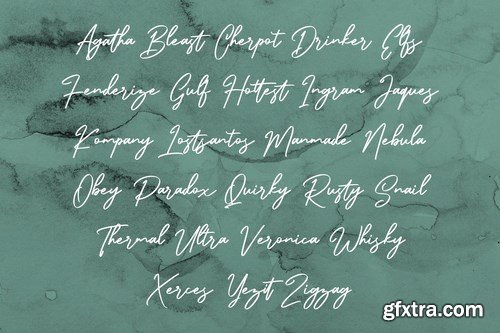 Agatha Bleast Cherpot Drinker Elfs
Fenderize Gulf Hottest Ingram Jaques
Kompany Lostsantos Manmade Nebula
Obey Paradox Quirky Rusty Snail
Thermal Ultra Veronica Whisky
Xerces Yezit Zigzag
gfxtra.com